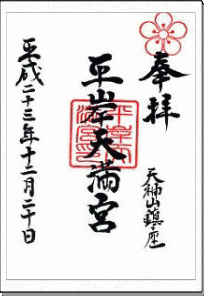 奉拝
天神山鎮座
平岸天満宮
平成二十三年十二月二十日